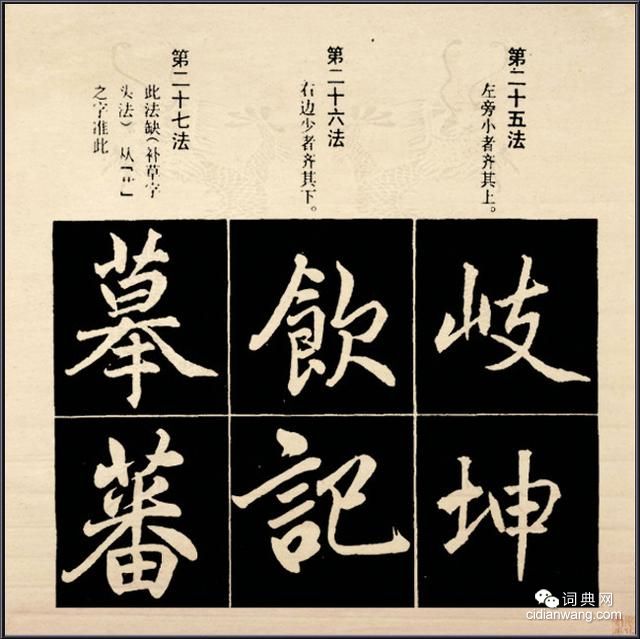 第二十五法
左旁小者齐其上。
第二十六法
右边少者齐其下。
第二十七法
此法缺(补草字
头法) 从「艹」
之字准此
岐
坤
飲
記
摹
蕃
词典网
cidianwang.com